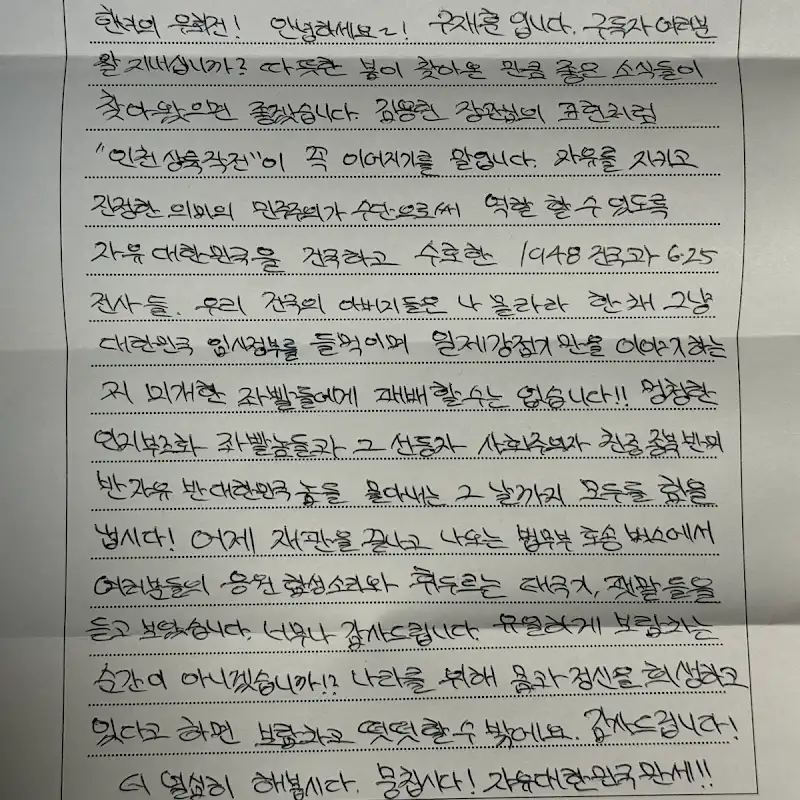 한녀의 우횟건! 안녕하세요~! 구재훈입니다. 구독자 여러분
잘 지내십니까? 따뜻한 봄이 찾아온 만큼 좋은 소식들이
찾아왔으면 좋겠습니다. 김용현 장관님의 표현처럼
"인천상륙작전"이 꼭 이어지기를 말입니다. 자유를 지키고
진정한 의미의 민주주의가 수단으로써 역할 할 수 있도록
자유 대한민국을 건국하고 수호한 1948 건국과 6.25
전사들. 우리 건국의 아버지들은 나 몰라라 한 채 그냥
대한민국 임시정부를 들먹이며 일제강점기만을 이야기하는
저 미개한 좌빨들에게 패배할 수는 없습니다!! 멍청한
인지부조화 좌빨놈들과 그 선동자 사회주의자 친중 종북 반미
반자유 반대한민국 놈들 몰아내는 그 날까지 모두들 힘을
냅시다! 어제 재판을 끝나고 나오는 법무부 호송 버스에서
여러분들의 응원 함성소리와 휘두르는 태극기, 팻말들을
듣고 보았습니다. 너무나 감사드립니다. 유일하게 보람차는
순간이 아니겠습니까!? 나라를 위해 몸과 정신을 희생하고
있다고 하면 보람차고 떳떳할 수 밖에요. 감사드립니다!
더 열심히 해봅시다. 뭉칩시다! 자유대한민국만세!!